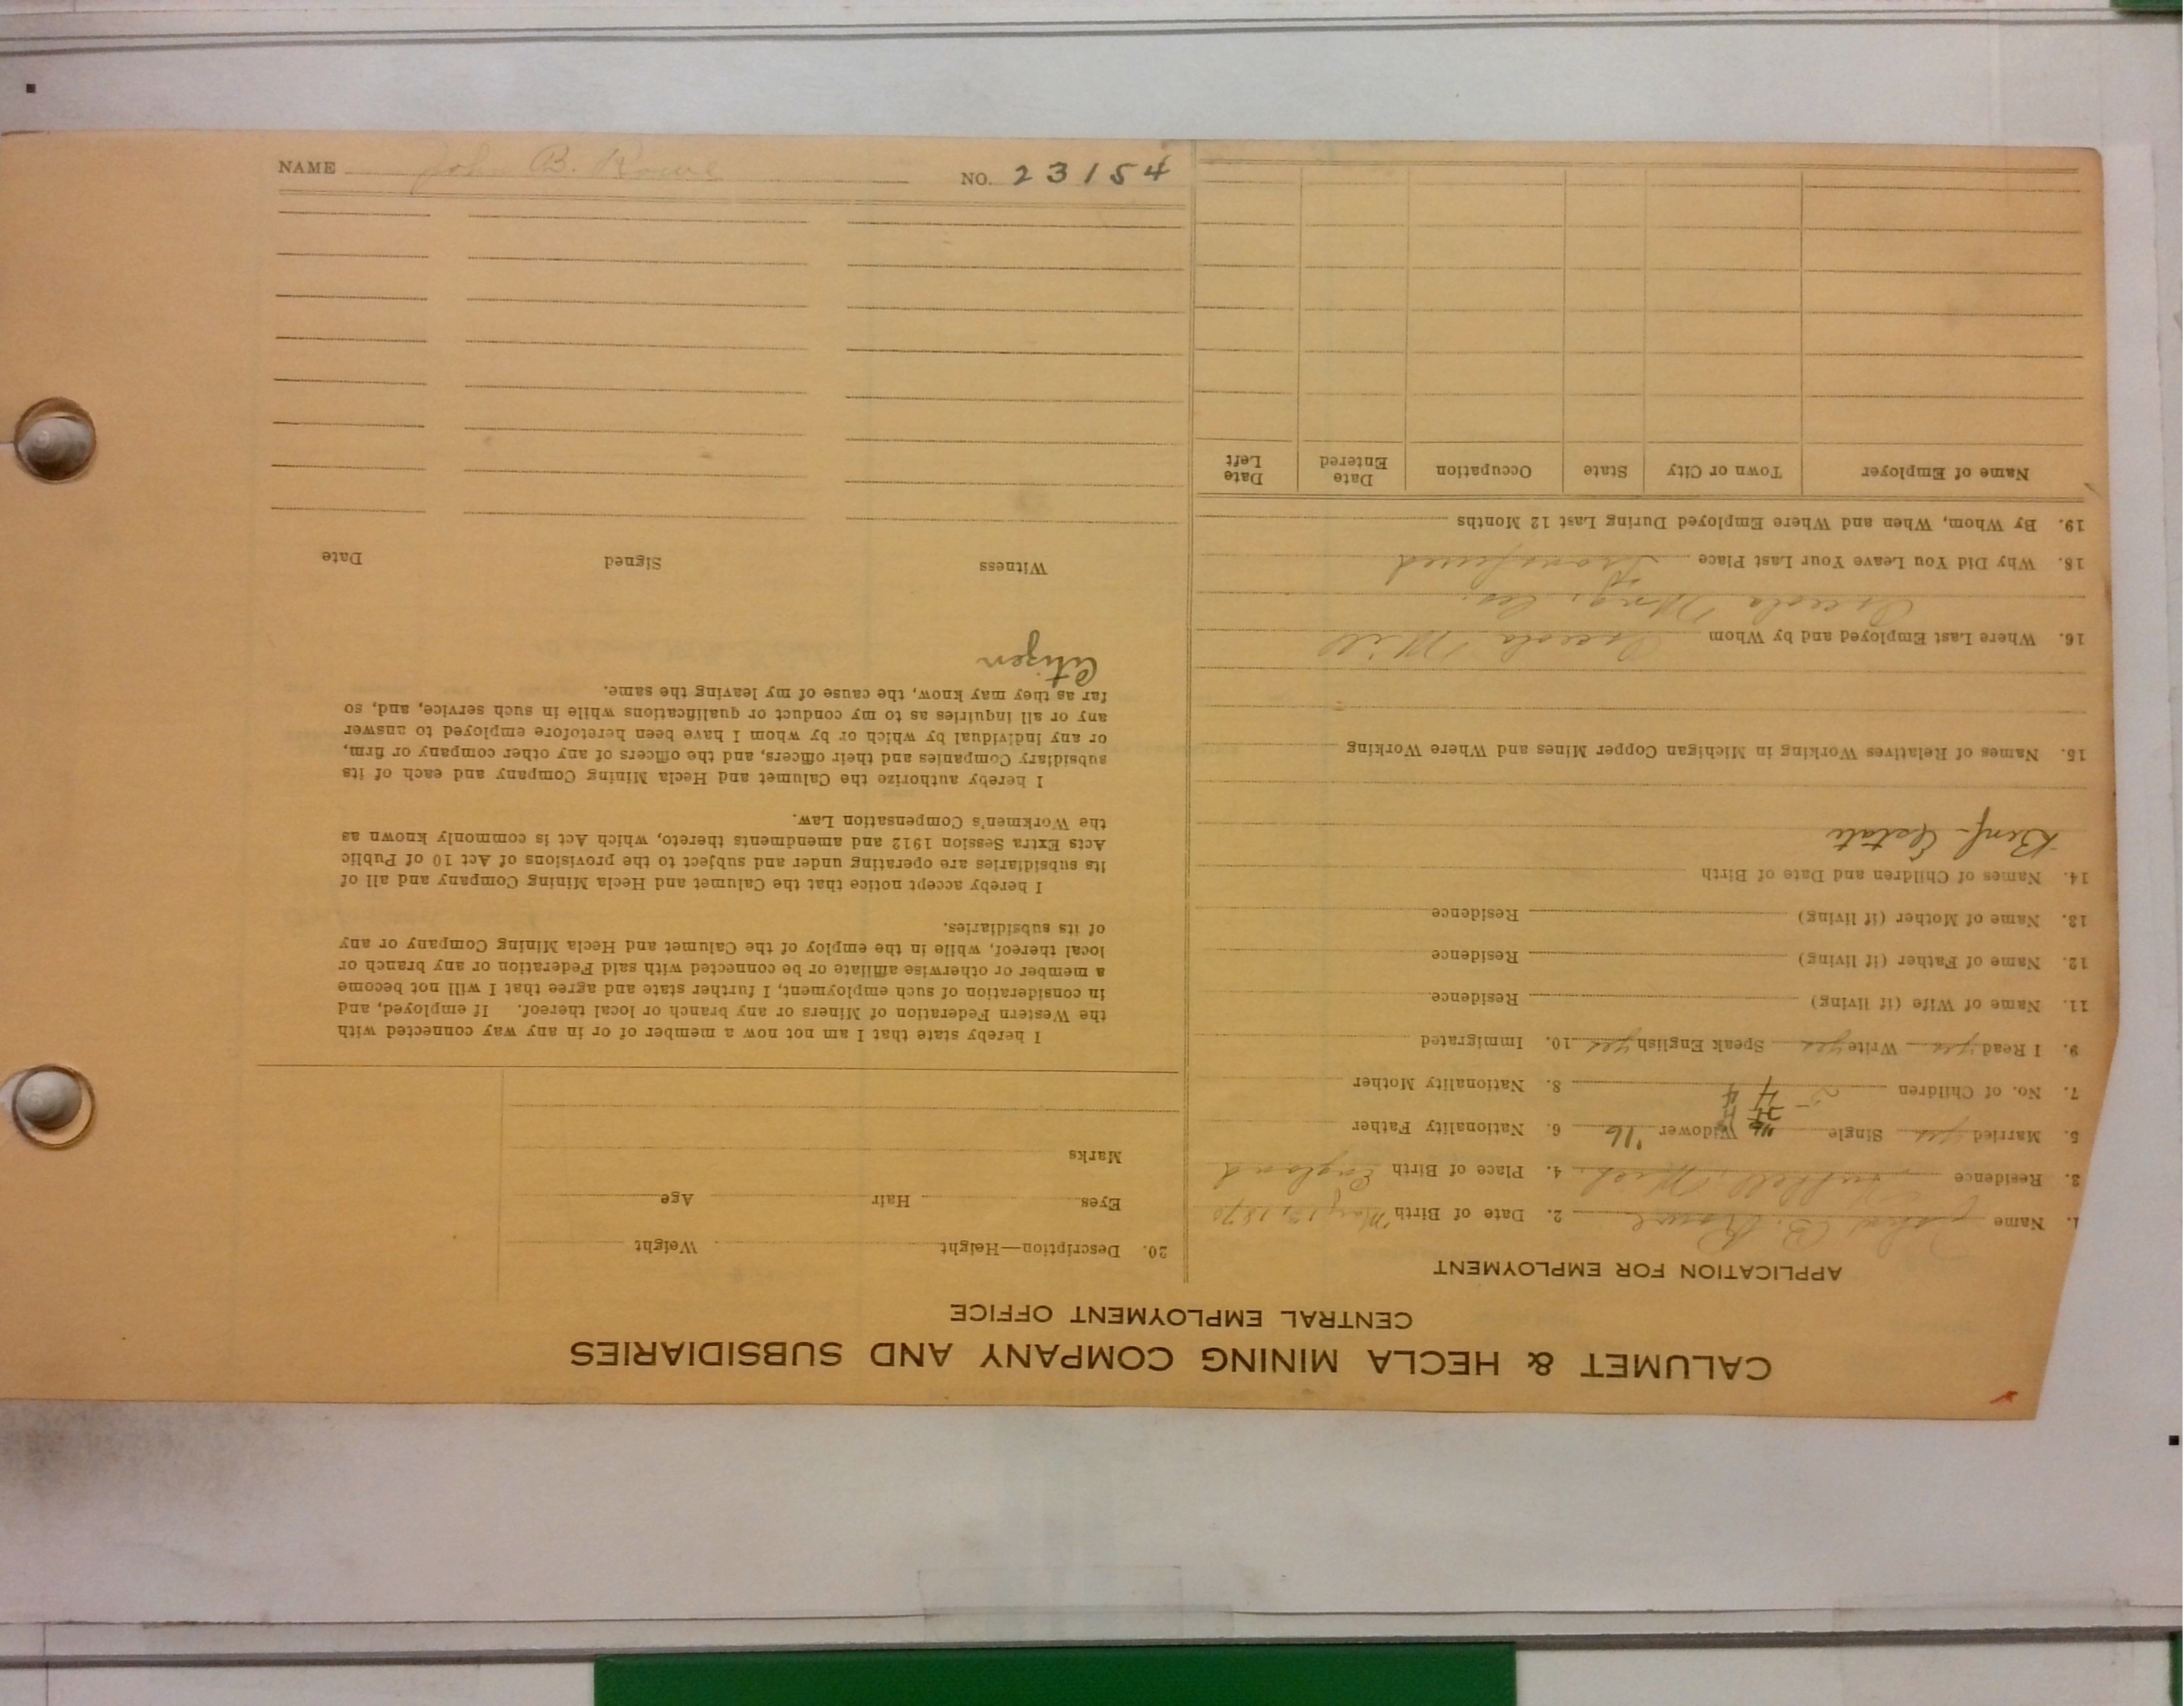 NAME John B. Rowe NO. 23154
CALUMET & HECLA MINING COMPANY AND SUBSIDIARIES
CENTRAL EMPLOYMENT OFFICE
APPLICATION FOR EMPLOYMENT
1. Name John B. Rowe 2. Date of Birth May 13, 1870
3. Residence Hubbell, Mich. 4. Place of Birth England
5. Married yes Single Widower '16 6. Nationality Father
7. No. of Children 8. Nationality Mother
9. I Read yes Write yes Speak English yes 10. Immigrated
11. Name of Wife (if living) Residence
12. Name of Father (if living) Residence
13. Name of Mother (if living) Residence
14. Names of Children and Date of Birth
Benf- Estate
15. Names of Relatives Working in Michigan Copper Mines and Where Working
16. Where Last Employed and by Whom Osceola Mill
Osceola Mng. Co.
18. Why Did You Leave Your Last Place Transferred
19. By Whom, When and Where Employed During Last 12 Months
Name of Employer Town or City State Occupation Date Entered Date Left
20. Description—Height Weight
Eyes Hair Age
Marks
I hereby state that I am not now a member of or in any way connected with
the Western Federation of Miners or any branch or local thereof. If employed, and
in consideration of such employment, I further state and agree that I will not become
a member or otherwise affiliate or be connected with said Federation or any branch or
local thereof, while in the employ of the Calumet and Hecla Mining Company or any
of its subsidiaries.
I hereby accept notice that the Calumet and Hecla Mining Company and all of
its subsidiaries are operating under and subject to the provisions of Act 10 of Public
Acts Extra Session 1912 and amendments thereto, which Act is commonly known as
the Workmen's Compensation Law.
I hereby authorize the Calumet and Hecla Mining Company and each of its
subsidiary Companies and their officers, and the officers of any other company or firm,
or any individual by which or by whom I have been heretofore employed to answer
any or all inquiries as to my conduct or qualifications while in such service, and, so
far as they may know, the cause of my leaving the same.
Citizen
Witness Signed Date